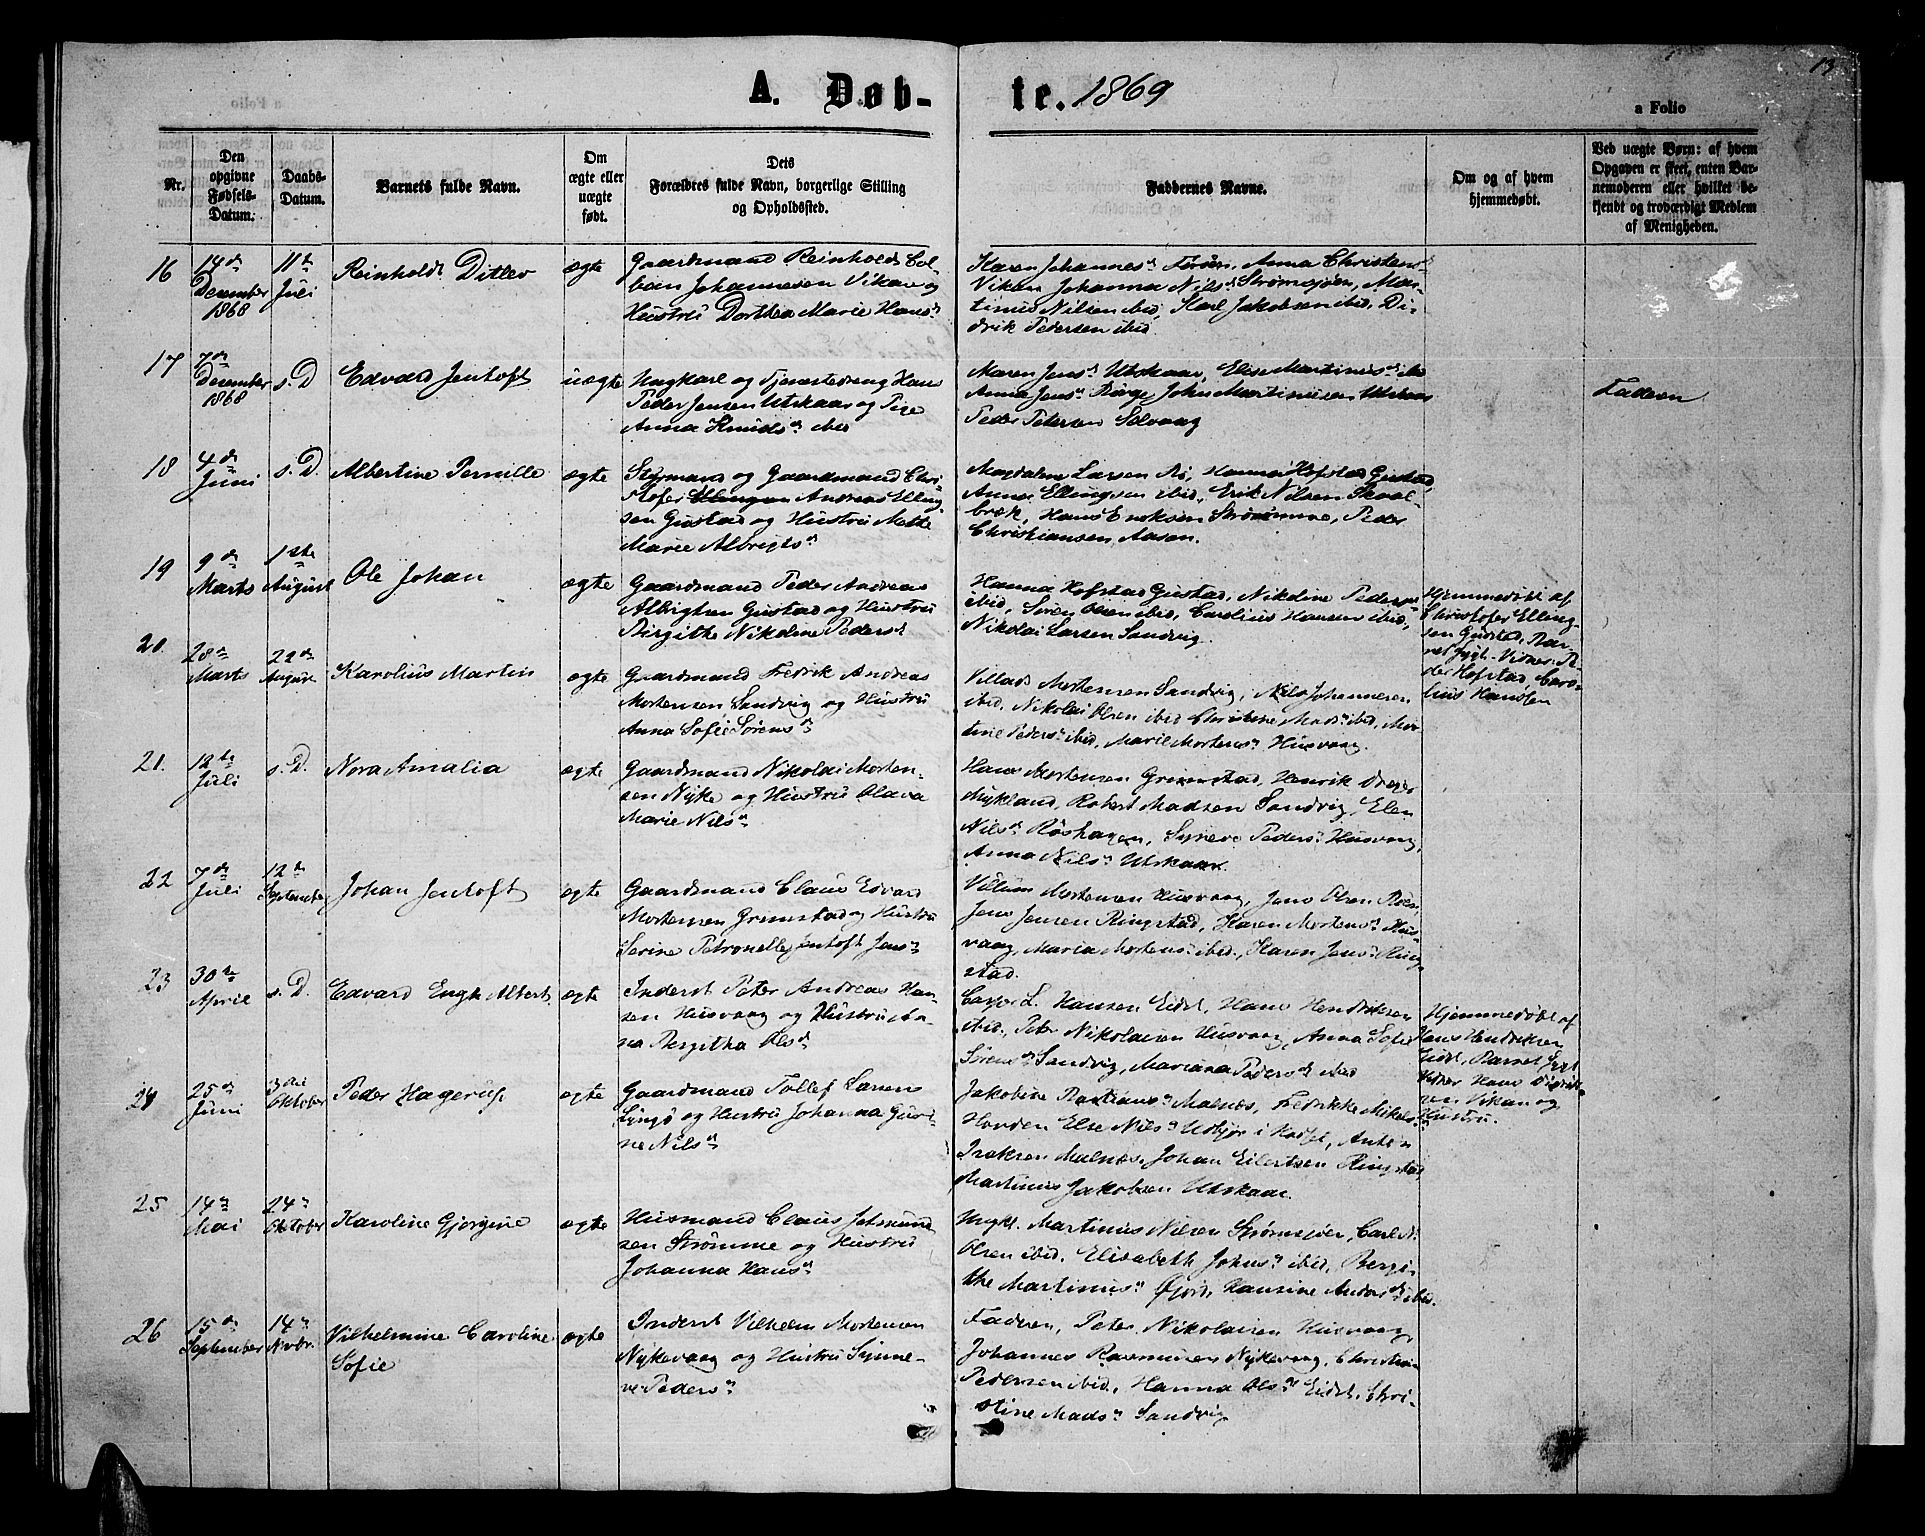 13
A. Døb-
te. 1869
a Folio
Nr.
Den opgivne Fødsels-Datum.
Daabs-Datum.
Barnets fulde Navn.
Om ægte eller uægte født.
Dets Forældres fulde Navn, borgerlige Stilling og Opholdssted.
Faddernes Navne.
Om og af hvem hjemmedøbt.
Ved uægte Børn: af hvem Opgaven er skeet, enten Barnemoderen eller hvilket bekjendt og troværdigt Medlem af Menigheden.
16
14de December 1868
11te Juli
Reinholdt Ditlev
ægte
Gaardmand Reinholdt Col-
ban Johannesen Vikan og
Hustru Dorthea Marie Hans d.
Karen Johannes d. Anna Christens d.
Vikan Johanna Nils d. Strømsjøen, Mar-
tinus Nilsen ibid, Karl Jakobsen ibid, Di-
drik Pedersen ibid
17
7de December 1868
s. D
Edvard Jentoft
uægte
Ungkarl og Tjenestedreng Hans
Peder Jensen Utskaar og Pige
Anna Knuds d. ibid
Maren Jens d. Utskaar, Else Martinus d. ibid
Anna Jens d. John Martinusen Utskaar
Peder Petersen Solvaag
Faderen
18
4de Juni
s. D.
Albertine Pernille
ægte
Styrmand og Gaardmand Chri-
stofer Andreas Elling-
sen Gustad og Hustru Mette
Marie Albrigts d.
Magdalena Larsen Bø, Hanna Hofstad Gustad,
Anna Ellingsen ibid, Erik Nilsen Skaal-
bræk, Hans Eriksen Strømme, Peder
Christiansen Aasen.
19
9de Marts
1ste August
Ole Johan
ægte
Gaardmand Peder Andreas
Albrigtsen Gustad og Hustru
Birgitte Nikoline Peders d.
Hanna Hofstad Gustad, Nikoline Pedersen
ibid, Søren Olsen ibid, Carolius Hansen ibid,
Nikolai Larsen Sandvig.
Hjemmedøbt af
Christofer Elling-
sen Gustad, Bar-
net sygt. Vidner: Pe-
der Hofstad, Caro-
lius Hansen
20.
28de Marts
22de August
Karolius Martin
ægte
Gaardmand Fredrik Andreas
Mortensen Sandvig og Hustru
Anna Sofie Sørens d.
Villads Mortensen Sandvig, Nils Johannesen
ibid, Nikolai Olsen ibid Christine Mads d. ibid, Mar-
tine Peders d. ibid, Marie Mortens d. Husvaag.
21.
12te Juli
s. D.
Nora Amalia
ægte
Gaardmand Nikolai Morten-
sen Nyke og Hustru Olava
Marie Nils d.
Hans Mortensen Grimstad, Henrik Dreyer
Mykland, Robert Madsen Sandvig, Elen
Nils d. Røshagen, Syneve Peders d. Husvaag,
Anna Nils d. Utskaar.
22
7de Juli
12te September
Johan Jentoft
ægte
Gaardmand Claus Edvard
Mortensen Grimstad og Hustru
Serine Petronelle Jentoft Jens d.
Villum Mortensen Husvaag, Jens Olsen
Jens Jensen Ringstad, Karen Mortens d. Hus-
vaag, Maria Mortens d. ibid., Karen Jens d. Ring-
stad.
23
30te April
s. D.
Edvard Engk Albert
ægte
Inderst Peter Andreas Han-
sen Husvaag og Hustru An-
na Bergitha Ols d.
L. Hansen Eidet, Hans Hendriksen
ibid, Peter Nikolaisen Husvaag, Anna Sofie
Sørens d. Sandvig, Mariana Peders d. ibid
Hjemmedøbt af
Hans Hendriksen
Eidet, Barnet sygt
Vidner Hans Didrik-
sen Vikan og
Hustru.
24
25de Juni
3die Oktober
Peder Hagerup
ægte
Gaardmand Tollef Larsen
Lyngø og Hustru Johanna
Nils d.
Jakobine Bastians d. Malnes, Fredrikke Mikels d.
Hovden Else Nils d. Anton
Isaksen Malnes, Johan Eilertsen Ringstad,
Martinus Jakobsen Utskaar.
25
14de Mai
24de Oktober
Karoline Gjorgine
ægte
Husmand Claus Jetmund-
sen Strømme og Hustru
Johanna Hans d.
Ungk. Martinus Nilsen Strømsjøen, Carl
Olsen ibid. Elisabeth Johns d. ibid, Bergi-
the Martinus d. Fjord, Hansine Anders d. ibid.
26
15de September
14de Novbr.
Vilhelmine Caroline
Sofie
ægte
Inderst Vilhelm Mortensen
Nykevaag og Hustru Synne-
ve Peders d.
Faderen, Peter Nikolaisen Husvaag
Johannes Rasmusen Nykevaag, Christian
Pedersen ibid, Hanna Ols d. Eidet, Chri-
stine Mads d. Sandvig